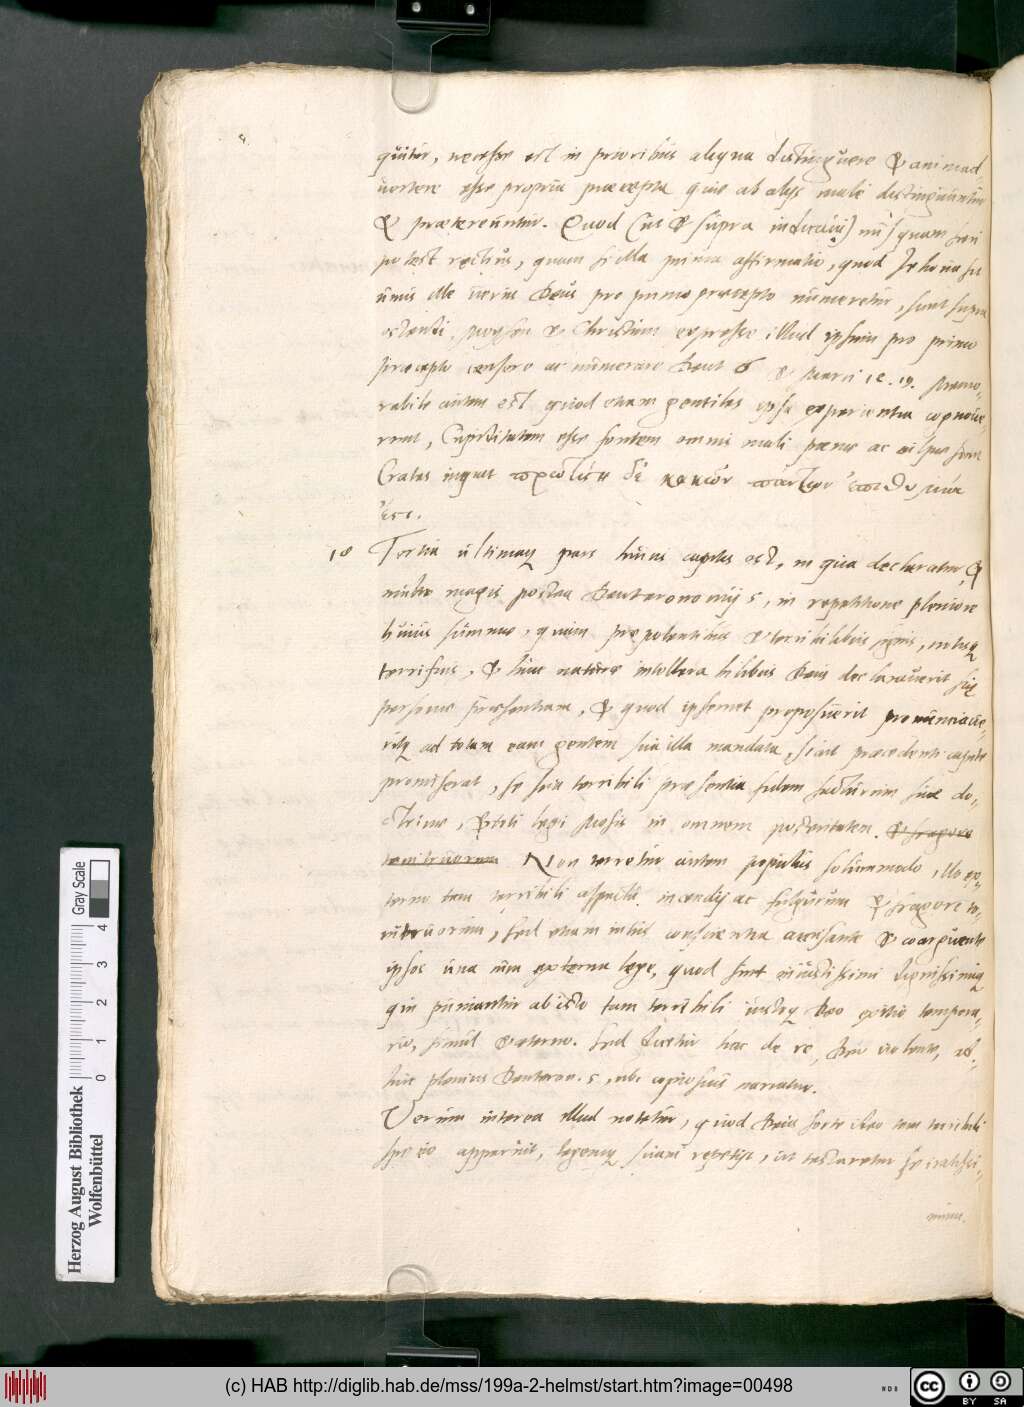 quitur, necesse est in prioribus aliqua distinguere & animad-
vertere esse propria praecepta quae ab alijs male distinguuntur
& praetereuntur. Quod (ut & supra indicavi) nusquam fieri
potest rectius, quam si illa prima affirmatio, quod Jehova sit
unus ille verus Deus pro primo praecepto numeretur, sicut supra
ostendi, Moysen & Christum expresse illud ipsum pro primo
praecepto censere ac numerare Deut 6 & Marci 12. 19. Memo-
rabile autem est quod etiam gentiles ipsa experientia cognove-
runt, Cupiditatem esse fontem omnis mali poenae ac culpae sicut
Crates inquit δὲ κακῶν πάντων ἐπιθυμία
ἐστ.
18 Tertia ultimaq pars huius capitis est, in qua declaratur, &
multo magis postea Deuteronomij 5, in repetitione pleniore
huius summae, quam praepotentibus & terribilibus signis, miris
terrificis, & huic naturae intollerabilibus Deus declaraverit suae
personae praesentiam, & quod ipsemet proposuerit pronunciave-
ritq ad totam eam gentem sua illa mandata, sicut praecedenti capite
promiserat, se sua terribili praesentia fidem facturum suae do-
ctrinae, & toti legi Mosis in omnem posteritatem. & fragore
tonitruorum Non terretur autem populus solummodo illo ex-
terno tam terribili aspectu incendij ac fulgurum & fragore to-
nitruorum, sed etiam intus conscientia accusante & coarguente
ipsos una cum externa lege, quod sint iniustissimi dignissimiq
qui puniantur ab isto tam terribili iustoq Deo exitio tempora-
rio, simul & aeterno. Sed dicetur hac de re, Deo volente, ad-
huc plenius Deuteron. 5, ubi copiosius narratur.
Verum interea illud notetur, quod Deus forte ideo tam terribili
specie apparuit, legemq suam repetijt, ut testaretur se iratissi-
mum.
Gray Scale
0 1 2 3 4
Herzog August Bibliothek
Wolfenbüttel
(c) HAB http://diglib.hab.de/mss/199a-2-helmst/start.htm?image=00498
NDB
cc BY SA